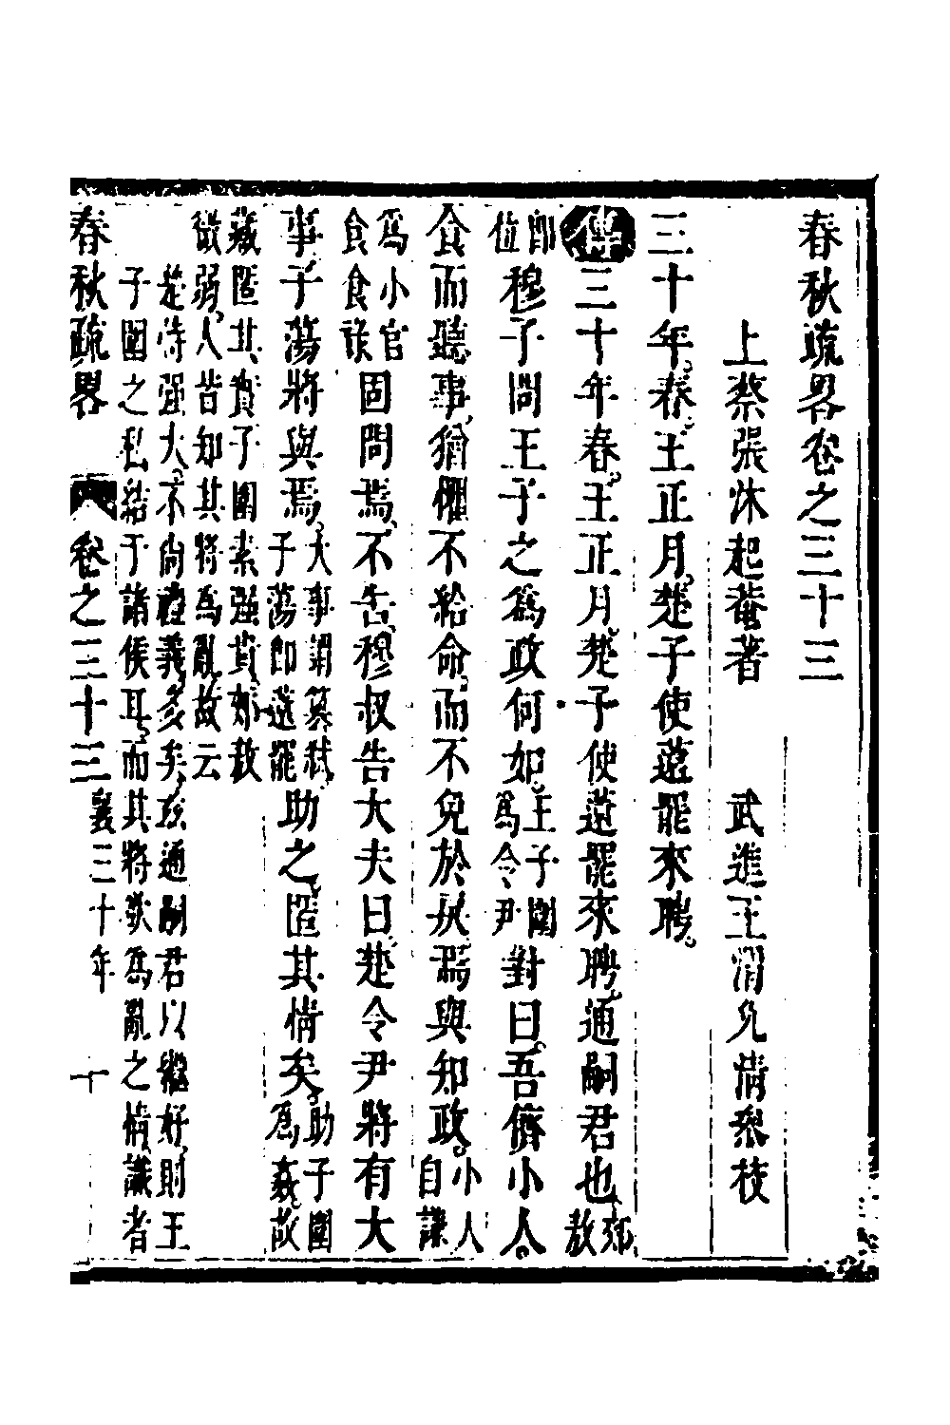 春秋疏畧卷之三十三
上蔡張沐起菴著　武進王渭允情參校
三十年春王正月楚子使薳罷來聘
傳三十年春王正月楚子使薳罷來聘通嗣君也郟敖
即位穆子問王子之爲政何如王子圍爲令尹對曰吾儕小人
食而聽事猶懼不給命而不免於戾焉與知政小人自謙
爲小官食食祿固問焉不告穆叔告大夫曰楚令尹將有大
事子蕩將與焉大事謂篡弑子蕩即薳罷助之匿其情矣助子圍爲姦故
藏匿其實子圍素强貴郟敖
微弱人皆知其將爲亂故云
楚恃强大不尚禮義多矣玆通嗣君以繼好則王
子圍之私結于諸侯耳而其將欲爲亂之情識者
春秋疏畧　卷之三十三　襄三十年　一